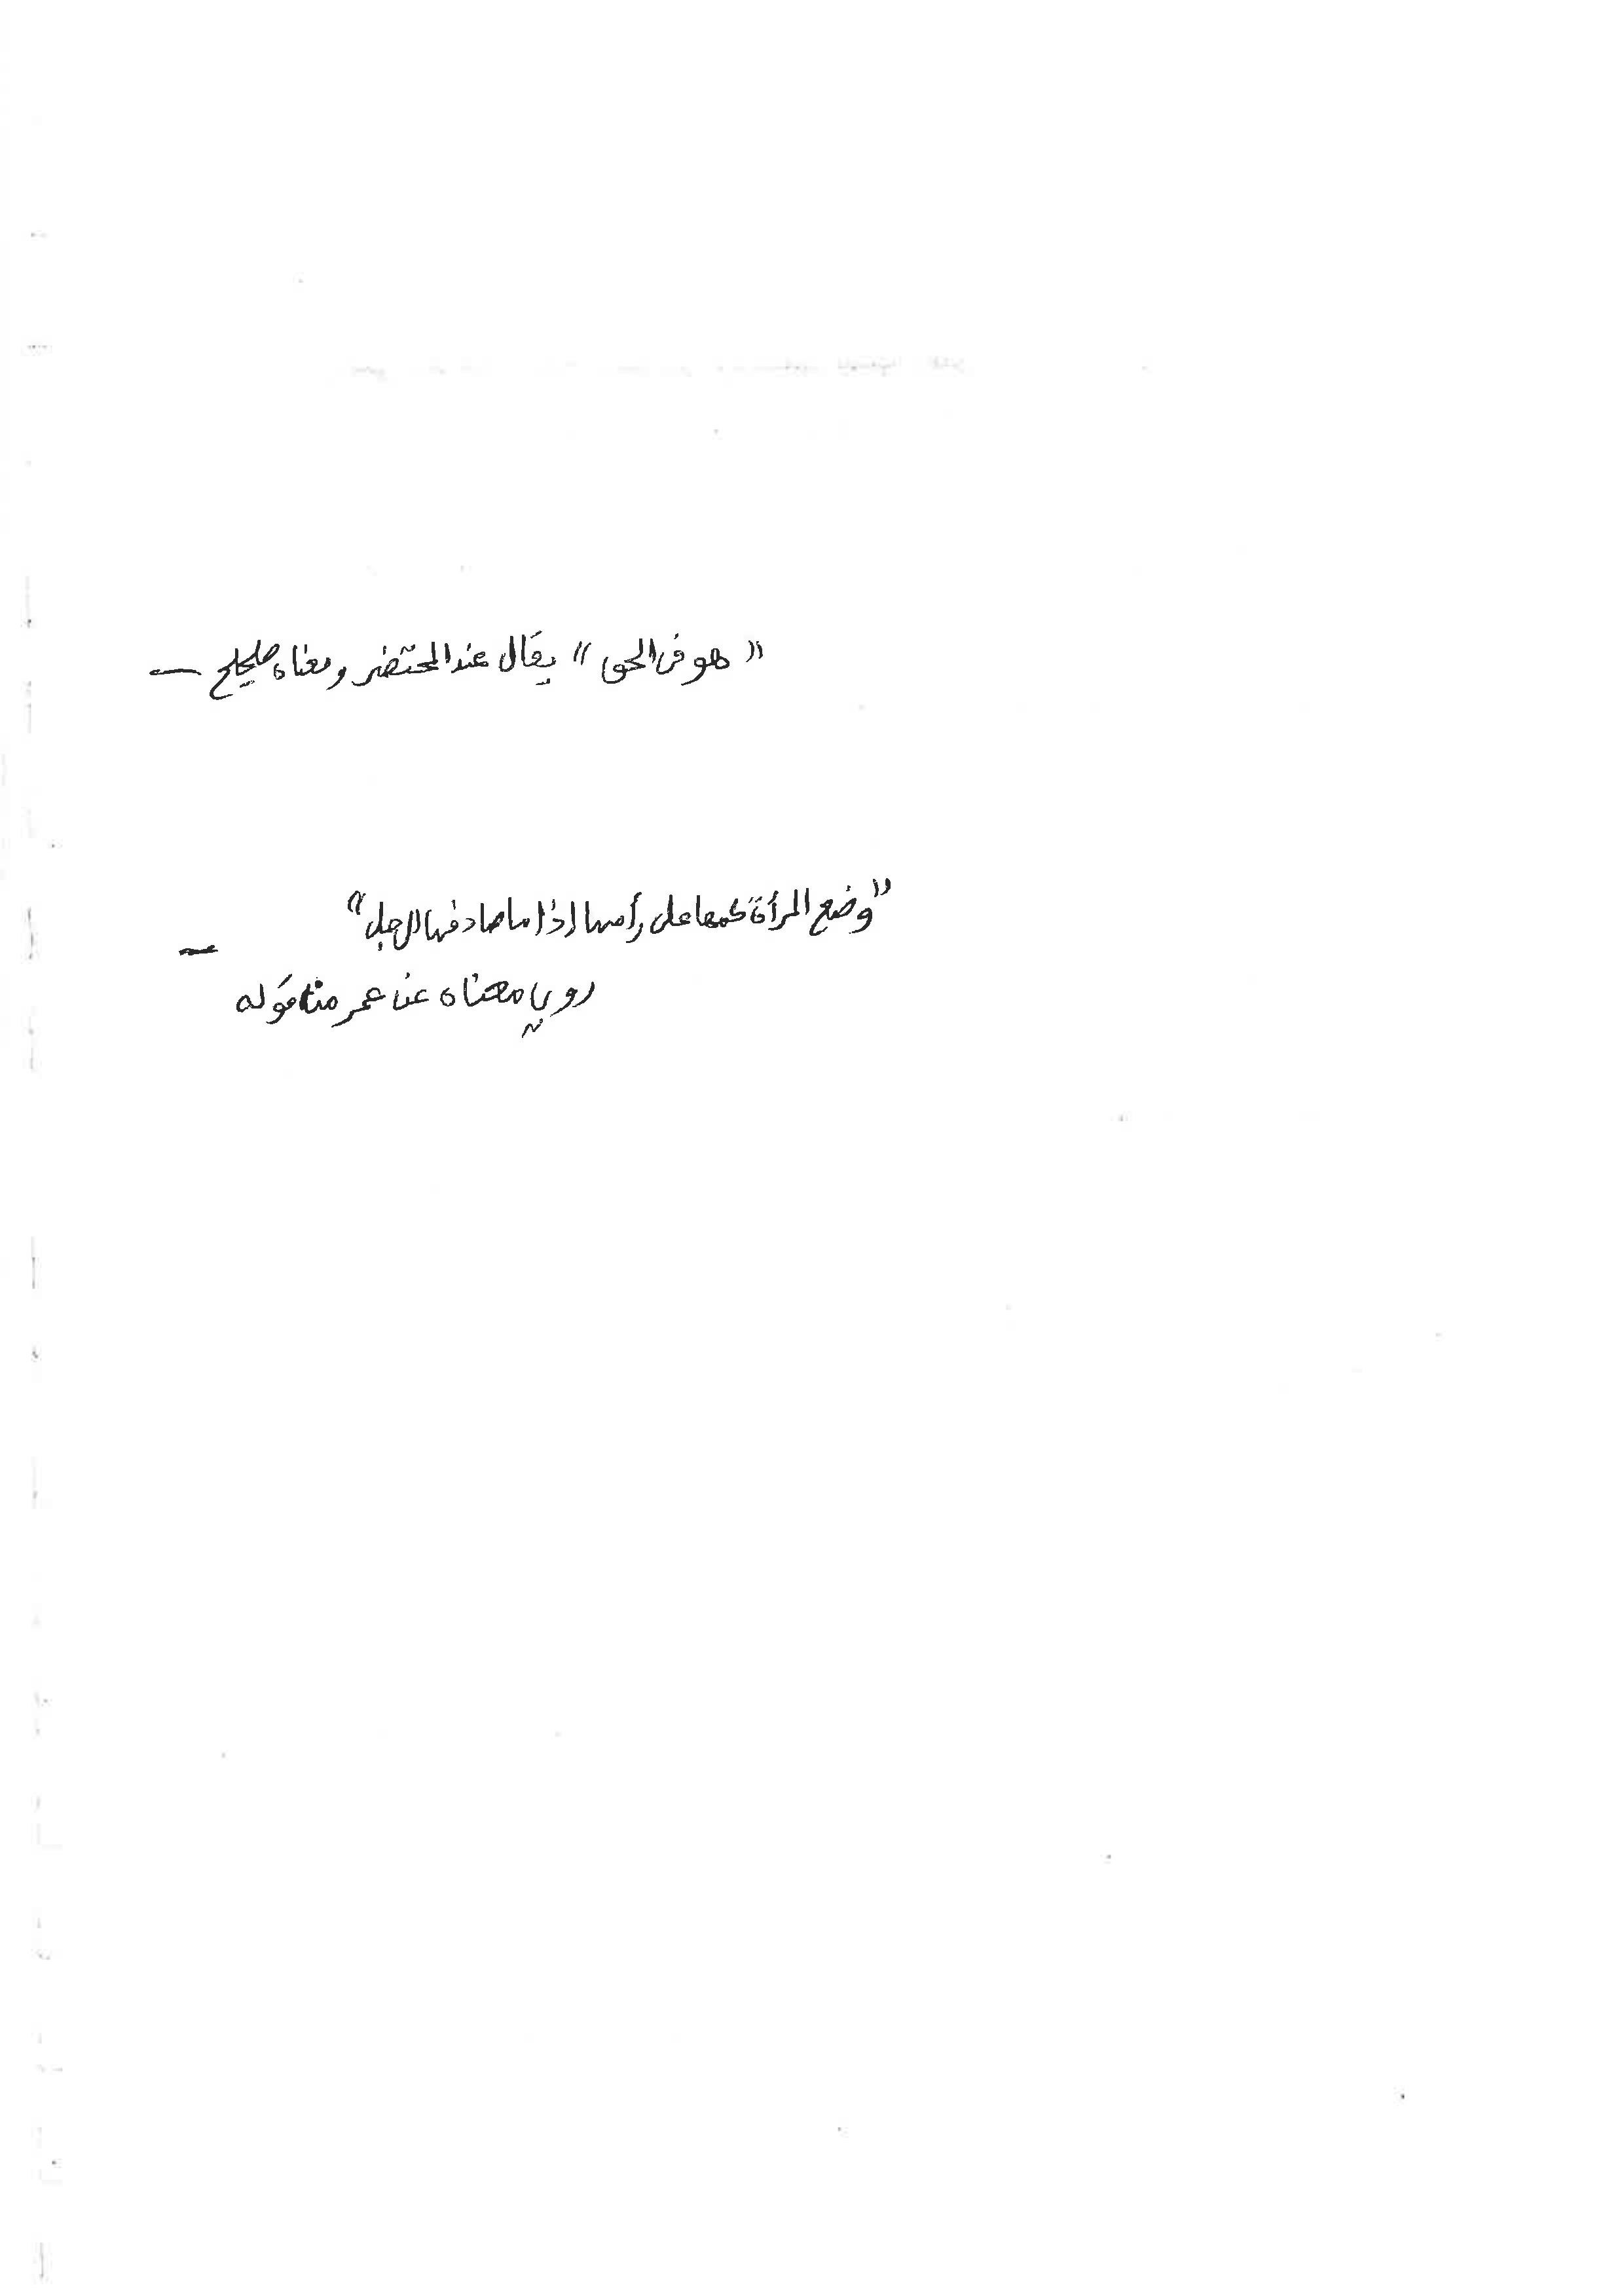 « هو في الحق » يقال عند المحتضر ومعناه صحيح —
"وضع المرأة كمها على رأسها إذا ما صادفها الرجل" —
روي معناه عن عمر من قوله